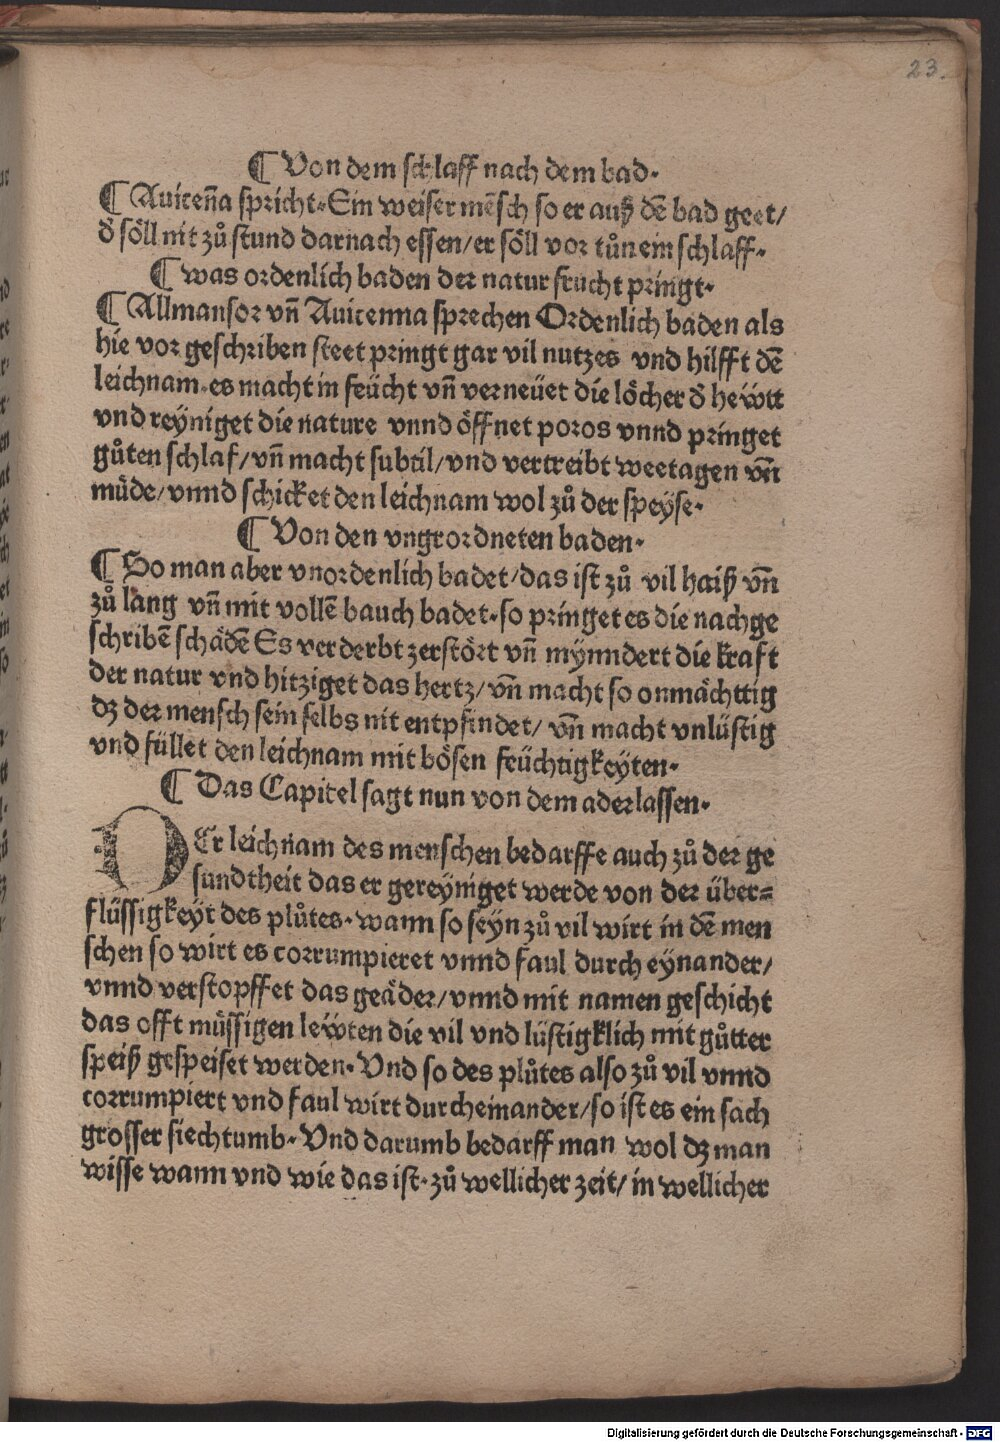 23.
¶ Von dem schlaff nach dem bad.
¶ Auiceña spricht. Ein weiser mēsch so er auß dē bad geet/
d̕ söll nit zů stund darnach essen/er söll vor tůn ein schlaff.
¶ was ordenlich baden der natur frucht pringt.
¶ Allmansor vn̄ Auicenna sprechen Ordenlich baden als
hie vor geschriben steet pringt gar vil nutzes vnd hilfft dē
leichnam. es macht in feücht vn̄ verneüet die löcher d̕ hewtt
vnd reyniget die nature vnnd öffnet poros vnnd pringet
gůten schlaf/vn̄ macht subtil/vnd vertreibt weetagen vn̄
müde/vnnd schicket den leichnam wol zů der speyse.
¶ Von den vngrordneten baden.
¶ So man aber vnordenlich badet/das ist zů vil haiß vn̄
zů lang vn̄ mit vollē bauch badet. so pringet es die nachge
schribē schädē Es verderbt zerstört vn̄ mynndert die kraft
der natur vnd hitziget das hertz/vn̄ macht so onmächttig
dz der mensch sein selbs nit entpfindet/ vn̄ macht vnlüstig
vnd füllet den leichnam mit bösen feüchtigkeyten.
¶ Das Capitel sagt nun von dem aderlassen.
DEr leichnam des menschen bedarffe auch zů der ge
sundtheit das er gereyniget werde von der über=
flüssigkeyt des plůtes. wann so seyn zů vil wirt in dē men
schen so wirt es corrumpieret vnnd faul durch eynander/
vnnd verstopffet das geäder/vnnd mit namen geschicht
das offt müssigen lewten die vil vnd lüstigklich mit gůtter
speiß gespeiset werden. Vnd so des plůtes also zů vil vnnd
corrumpiert vnd faul wirt durcheinander/so ist es ein sach
grosser siechtumb. Vnd darumb bedarff man wol dz man
wisse wann vnd wie das ist. zů wellicher zeit/ in wellicher
Digitalisierung gefördert durch die Deutsche Forschungsgemeinschaft - DFG